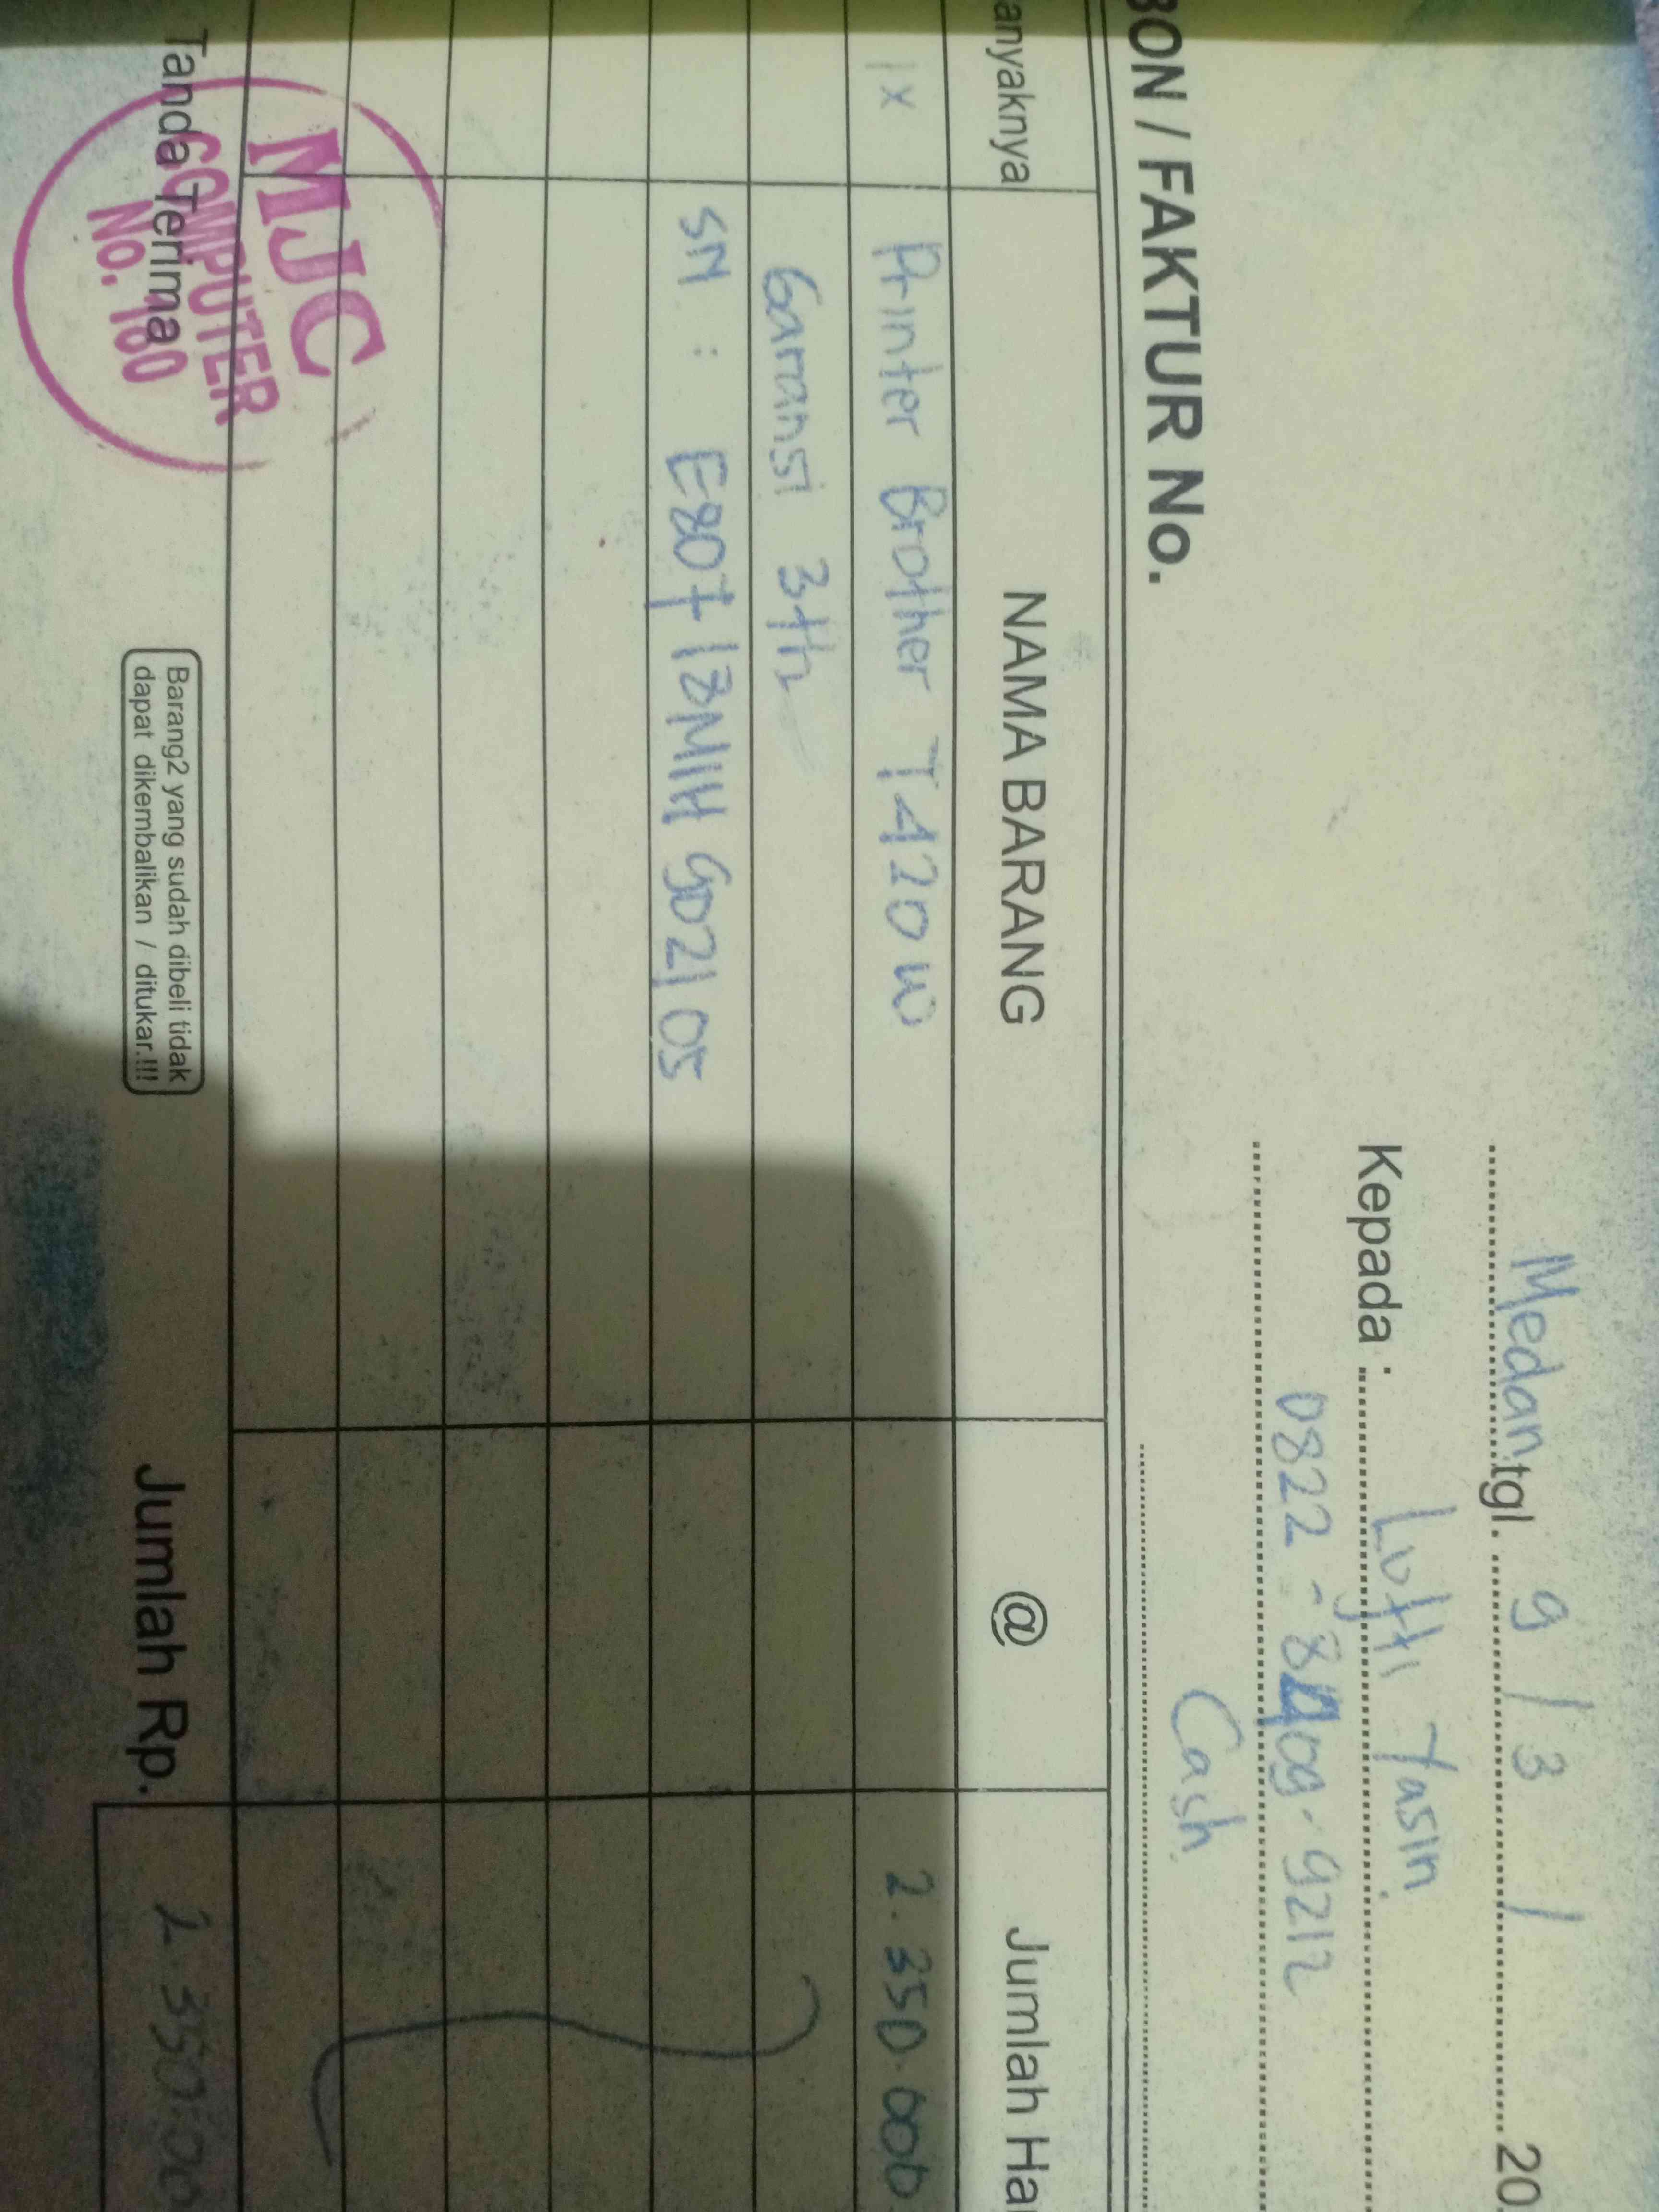 Medan, tgl. 9 / 3 / 20
Kepada : Lutfi Yasin
0822 - 8409 - 9212
BON / FAKTUR No. Cash
anyaknya NAMA BARANG @ Jumlah Ha
1x Printer Brother T420W 2.350.000
Garansi 3th
SN : E80713M1H902105
MJC
COMPUTER
No. 180
Tanda Terima
Barang2 yang sudah dibeli tidak
dapat dikembalikan / ditukar.!!!
Jumlah Rp. 2.350.00